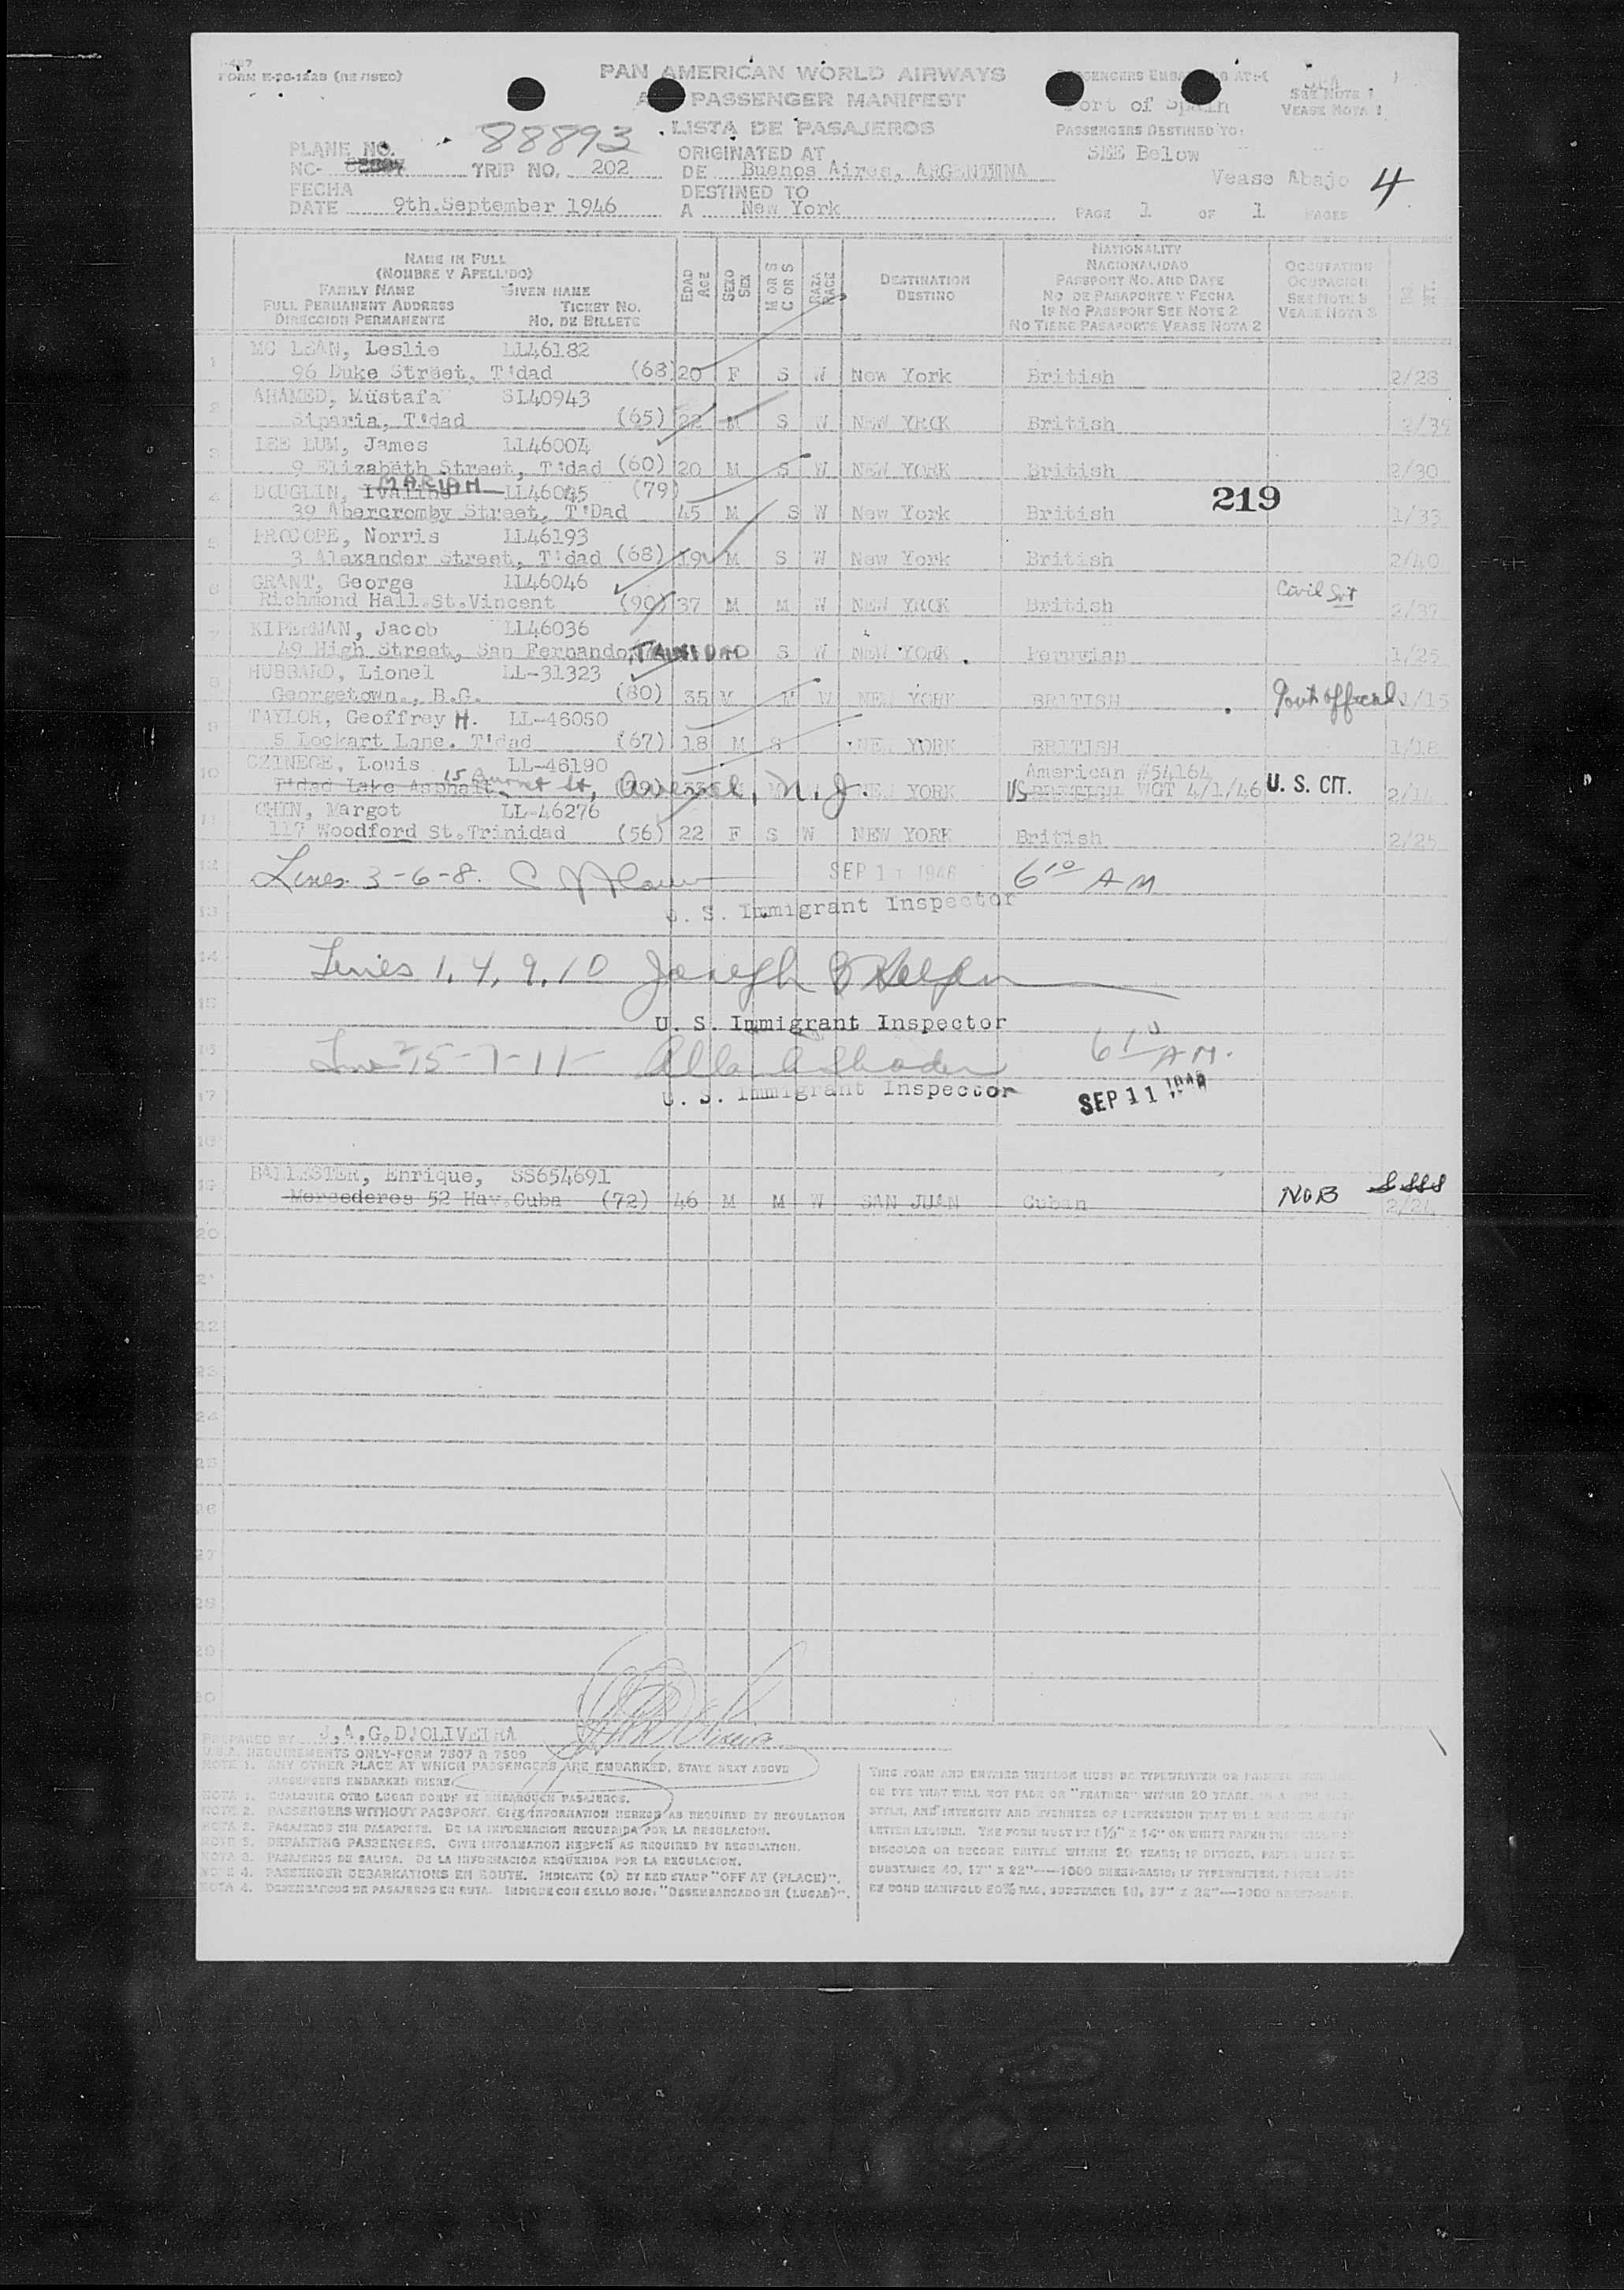 FORM K-PC-1228 (REVISED)
PAN AMERICAN WORLD AIRWAYS
PASSENGER MANIFEST
LISTA DE PASAJEROS
PASSENGERS EMBARKING AT:-(
SEE NOTE 1
VEASE NOTA 1
Port of Spain
PASSENGERS DESTINED TO:
SEE Below
Vease Abajo 4
88893
PLANE NO.
NC- TRIP NO. 202
ORIGINATED AT
DE Buenos Aires, ARGENTINA
FECHA
DATE 9th.September 1946
DESTINED TO
A New York
PAGE 1 OF 1 PAGES
NAME IN FULL
(NOMBRE Y APELLIDO)
FAMILY NAME GIVEN NAME
FULL PERMANENT ADDRESS TICKET NO.
DIRECCION PERMANENTE NO. DE BILLETE
EDAD AGE
SEXO SEX
M OR S
C OR S
RAZA RACE
DESTINATION
DESTINO
NATIONALITY
NACIONALIDAD
PASSPORT NO. AND DATE
NO DE PASAPORTE Y FECHA
IF NO PASSPORT SEE NOTE 2
NO TIENE PASAPORTE VEASE NOTA 2
OCCUPATION
OCUPACION
SEE NOTE 3
VEASE NOTA 3
1 MC LEAN, Leslie LL46182
96 Duke Street, T'dad (68) 20 F S W New York British 2/28
2 AHAMED, Mustafa SL40943
Siparia, T'dad (65) 22 M S W NEW YRCK British 2/39
3 LEE LUM, James LL46004
9 Elizabeth Street, T'dad (60) 20 M S W NEW YORK British 2/30
MARIAH
4 DOUGLIN, LL46045 (79)
219
39 Abercromby Street, T'Dad 45 M S W New York British 1/33
5 PROCOPE, Norris LL46193
3 Alexander Street, T'dad (68) 19 M S W New York British 2/40
6 GRANT, George LL46046
Richmond Hall.St.Vincent (90) 37 M M W NEW YRCK British Civil Svt 2/37
7 KIPERMAN, Jacob LL46036
49 High Street, San Fernando, TRINIDAD S W NEW YORK. Peruvian 1/25
8 HUBBARD, Lionel LL-31323
Georgetown., B.G. (80) 35 M M W NEW YORK BRITISH Govt official 1/15
9 TAYLOR, Geoffrey H. LL-46050
5 Lockart Lane. T'dad (67) 18 M S NEW YORK BRITISH 1/18
10 CZINEGE, Louis LL-46190
American #54164
T'dad Lake Asphalt. 15 St, N.J. NEW YORK US BRITISH WGT 4/1/46 U. S. CIT.
11 CHIN, Margot LL-46276
117 Woodford St.Trinidad (56) 22 F S W NEW YORK British 2/25
12 Lines 3-6-8. SEP 11 1946 6 10 AM
13 U. S. Immigrant Inspector
14 Lines 1, 4, 9, 10 Joseph
15
U. S. Immigrant Inspector
16 6 10 AM.
17 U. S. Immigrant Inspector SEP 11 1946
18
BALLESTER, Enrique, SS654691
19 Mercederes 52 Hav.Cuba (72) 46 M M W SAN JUAN Cuban NOB 2/24
20
21
22
23
24
25
26
27
28
29
30
PREPARED BY J.A.G.D'OLIVEIRA
U.S.A. REQUIREMENTS ONLY-FORM 7507 & 7509
NOTE 1. ANY OTHER PLACE AT WHICH PASSENGERS ARE EMBARKED, STATE NEXT ABOVE
PASSENGERS EMBARKED THERE
NOTA 1. CUALQUIER OTRO LUGAR DONDE SE EMBARQUEN PASAJEROS.
NOTE 2. PASSENGERS WITHOUT PASSPORT. GIVE INFORMATION HEREON AS REQUIRED BY REGULATION
NOTA 2. PASAJEROS SIN PASAPORTE. DE LA INFORMACION REQUERIDA POR LA REGULACION.
NOTE 3. DEPARTING PASSENGERS. GIVE INFORMATION HEREON AS REQUIRED BY REGULATION.
NOTA 3. PASAJEROS DE SALIDA. DE LA INFORMACION REQUERIDA POR LA REGULACION.
NOTE 4. PASSENGER DEBARKATIONS EN ROUTE. INDICATE (D) BY RED STAMP "OFF AT (PLACE)".
NOTA 4. DESEMBARCOS DE PASAJEROS EN RUTA. INDIQUE CON SELLO ROJO: "DESEMBARCADO EN (LUGAR)".
THIS FORM AND ENTRIES THEREON MUST BE TYPEWRITTEN OR PRINTED
OR DYE THAT WILL NOT FADE OR "FEATHER" WITHIN 20 YEARS,
STYLE, AND INTENSITY AND EVENNESS OF IMPRESSION THAT WILL
LETTER LEGIBLE. THE FORM MUST BE 8½" X 14" ON WHITE PAPER
DISCOLOR OR BECOME BRITTLE WITHIN 20 YEARS; IF DITTOED, PAPER MUST BE
SUBSTANCE 40, 17" X 22"—1000 SHEET-BASIS; IF TYPEWRITTEN, PAPER MUST
BE BOND MANIFOLD 50% RAG, SUBSTANCE 18, 17" X 22"—1000